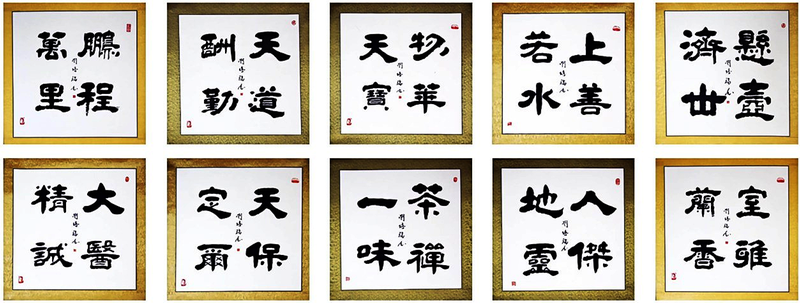 鵬程
萬里
天道
酬勤
物華
天寶
上善
若水
懸壺
濟世
大醫
精誠
天保
定爾
茶禪
一味
人傑
地靈
室雅
蘭香